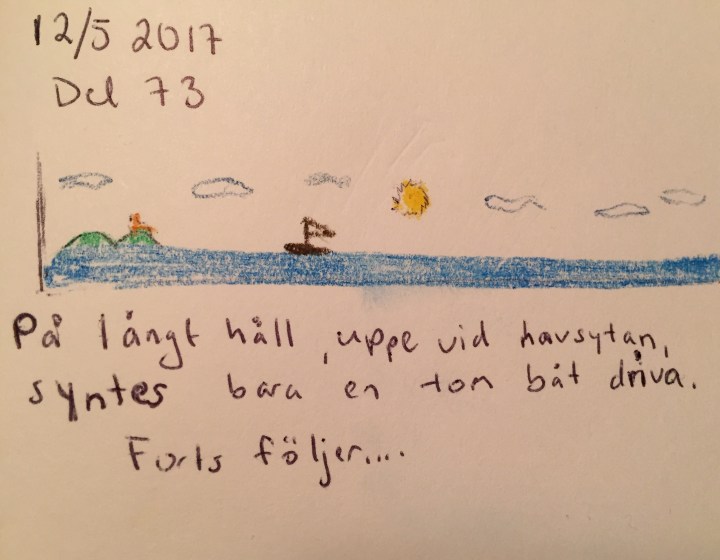 12/5 2017
Del 73
På långt håll, uppe vid havsytan,
syntes bara en tom båt driva.
Forts följer....